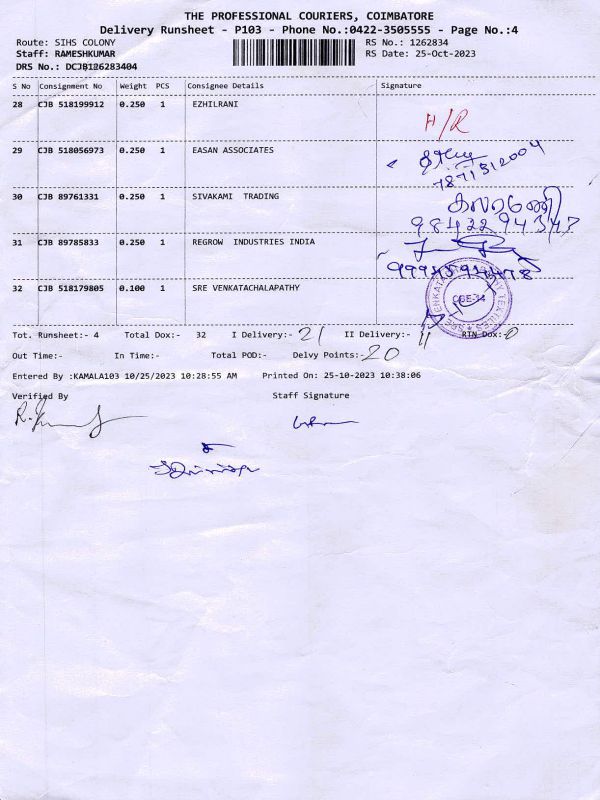 THE PROFESSIONAL COURIERS, COIMBATORE
Delivery Runsheet - P103 - Phone No.:0422-3505555 - Page No.:4
Route: SIHS COLONY RS No.: 1262834
Staff: RAMESHKUMAR RS Date: 25-Oct-2023
DRS No.: DCJB126283404
S No Consignment No Weight PCS Consignee Details Signature
28 CJB 518199912 0.250 1 EZHILRANI
H/R
29 CJB 518056973 0.250 1 EASAN ASSOCIATES
7871512004
30 CJB 89761331 0.250 1 SIVAKAMI TRADING
கலாமணி
9842294347
31 CJB 89785833 0.250 1 REGROW INDUSTRIES INDIA
32 CJB 518179805 0.100 1 SRE VENKATACHALAPATHY
CBE-14
Tot. Runsheet:- 4 Total Dox:- 32 I Delivery:- 21 II Delivery:- 11 RTN Dox:- 0
Out Time:- In Time:- Total POD:- Delvy Points:- 20
Entered By :KAMALA103 10/25/2023 10:28:55 AM Printed On: 25-10-2023 10:38:06
Verified By Staff Signature